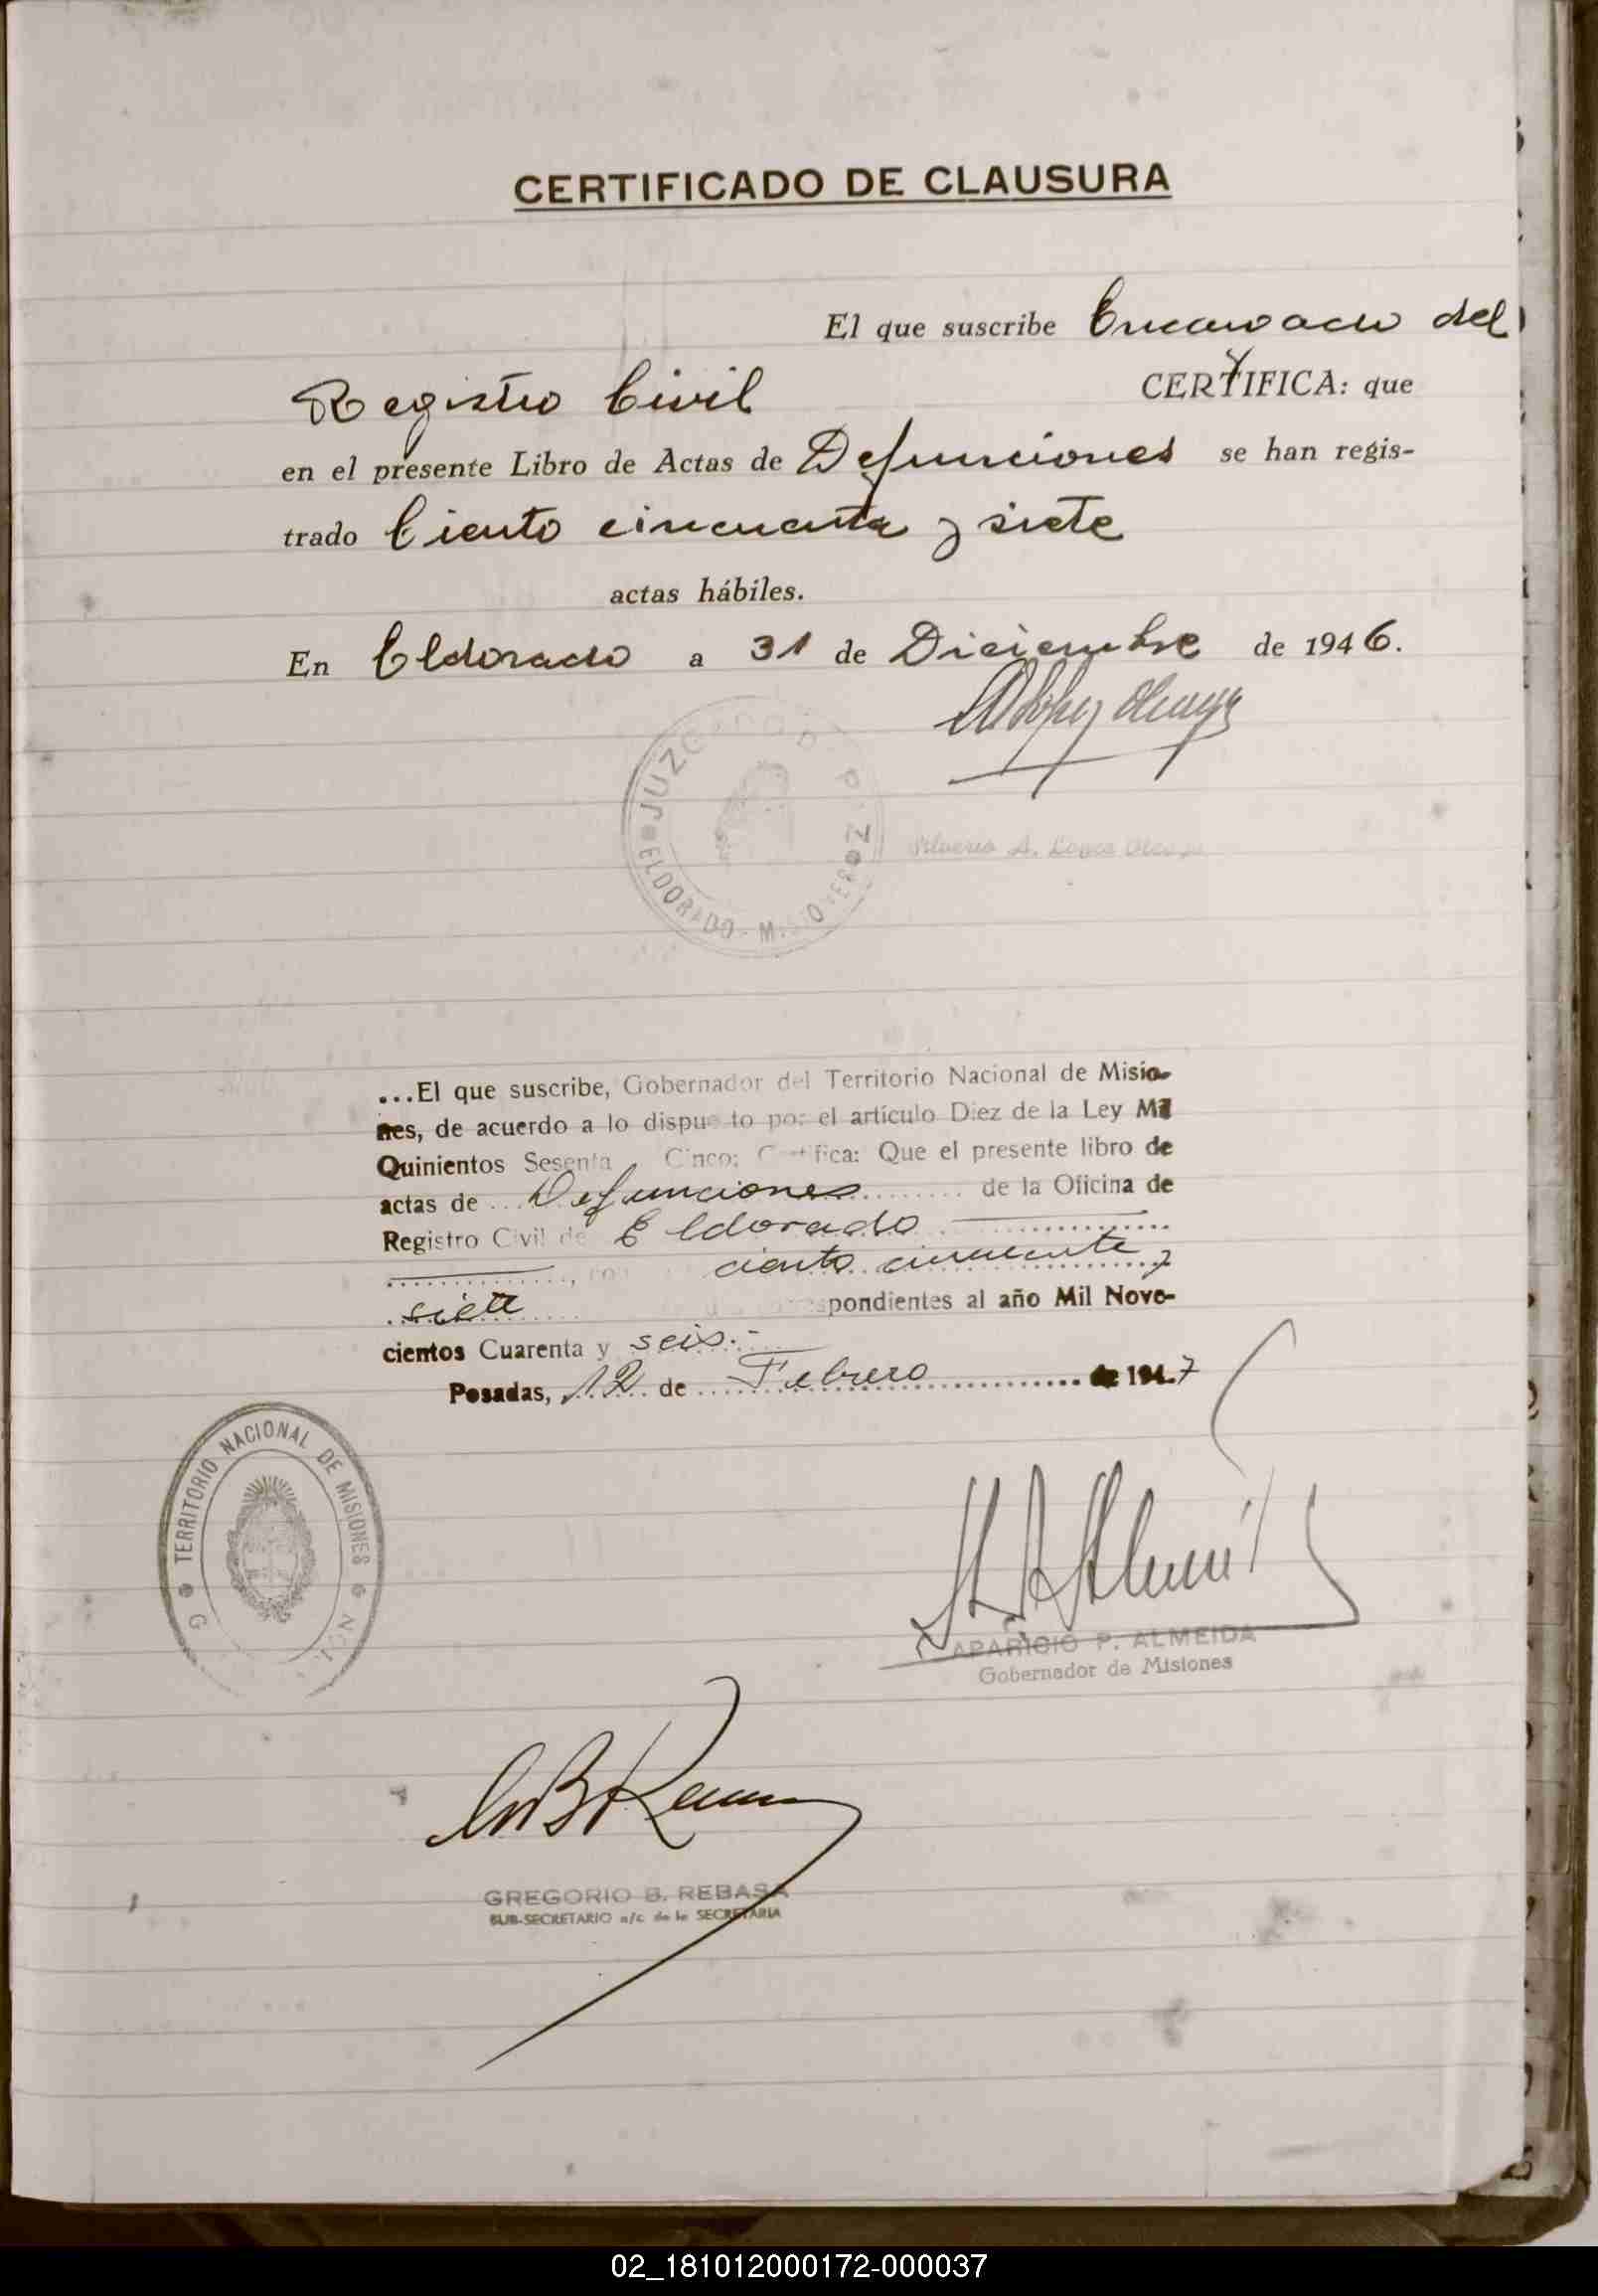 CERTIFICADO DE CLAUSURA
El que suscribe Encargado del
Registro Civil CERTIFICA: que
en el presente Libro de Actas de Defunciones se han regis-
trado Ciento cincuenta y siete
actas hábiles.
En Eldorado a 31 de Diciembre de 1946.
JUZGADO DE PAZ
ELDORADO - M.
...El que suscribe, Gobernador del Territorio Nacional de Misio-
nes, de acuerdo a lo dispuesto por el artículo Diez de la Ley Mil
Quinientos Sesenta Cinco; Certifica: Que el presente libro de
actas de Defunciones de la Oficina de
Registro Civil de Eldorado
ciento cincuenta y
siete correspondientes al año Mil Nove-
cientos Cuarenta y seis.-
Posadas, 12 de Febrero de 1947
TERRITORIO NACIONAL DE MISIONES
APARICIO P. ALMEIDA
Gobernador de Misiones
GREGORIO B. REBASA
SUB-SECRETARIO a/c de la SECRETARIA
02_181012000172-000037